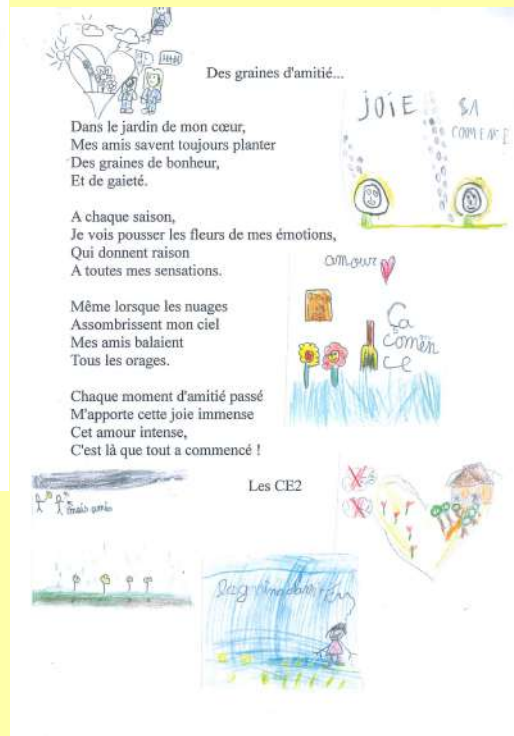 Des graines d'amitié...
JOIE
SA
COMENCE
Dans le jardin de mon cœur,
Mes amis savent toujours planter
Des graines de bonheur,
Et de gaieté.
A chaque saison,
Je vois pousser les fleurs de mes émotions,
Qui donnent raison
A toutes mes sensations.
amour
Ça
comen
ce
Même lorsque les nuages
Assombrissent mon ciel
Mes amis balaient
Tous les orages.
Chaque moment d'amitié passé
M'apporte cette joie immense
Cet amour intense,
C'est là que tout a commencé !
Les CE2
amis